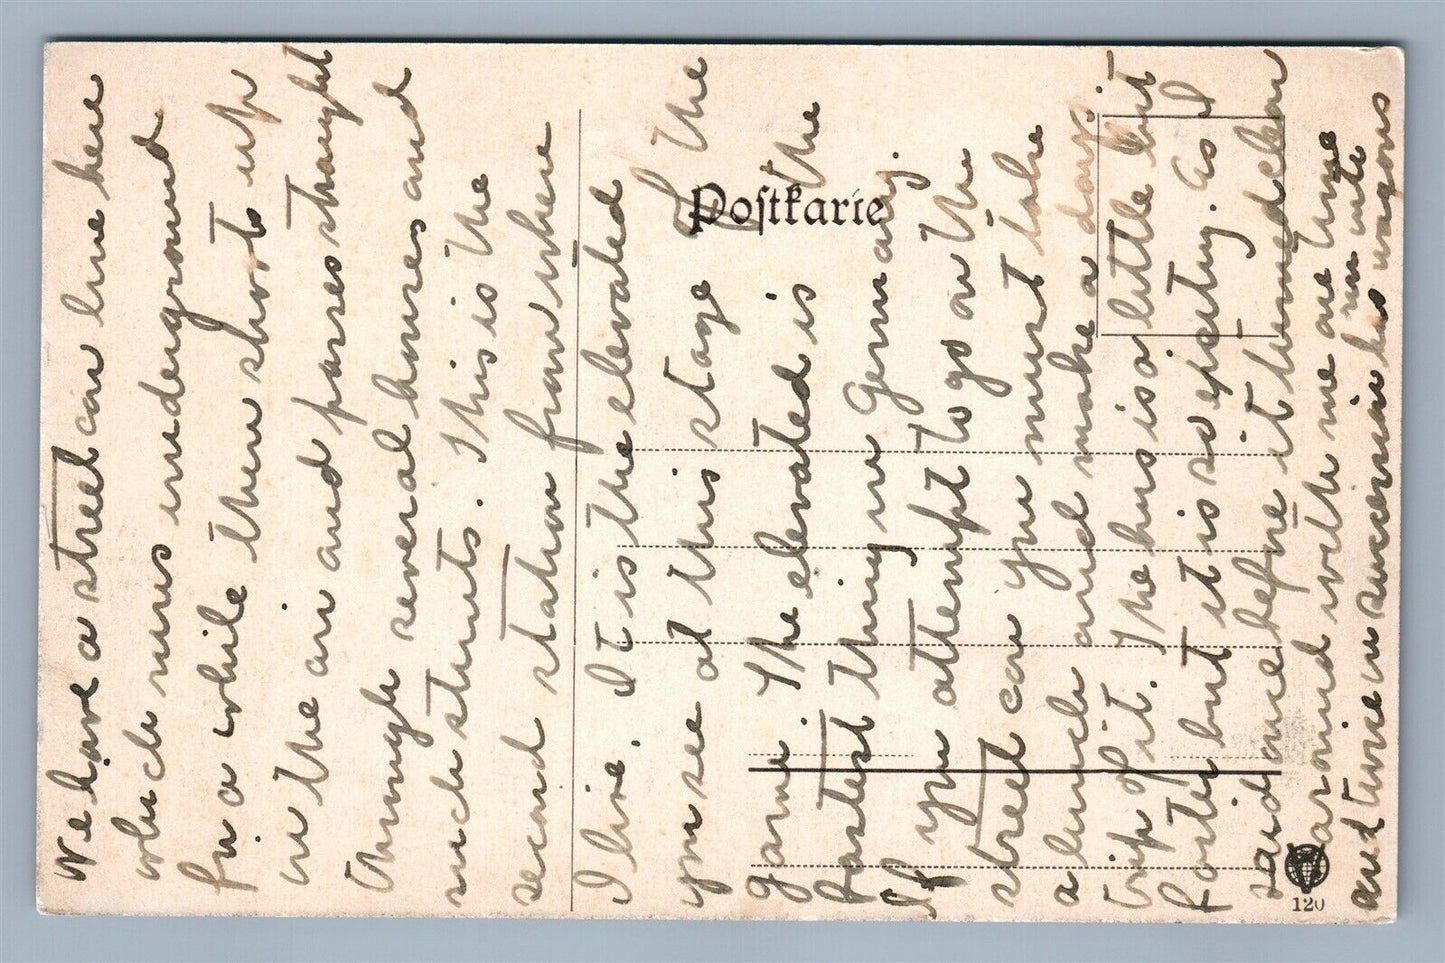 We have a street car line here
which runs underground
for a while then shoots up
in the air and passes straight
through several houses and
such stunts. This is the
second station from where
I live. It is the elevated
you see at this stage of the
game. The elevated is the
fastest thing in Germany.
If you attempt to go on the
street car you must take
a lunch and make a day
trip of it. The bus is a little bit
faster but it is so exciting. As I
said once before it turned clear
around with me one time
and twice in succession has run into
wagons
Postkarte
120